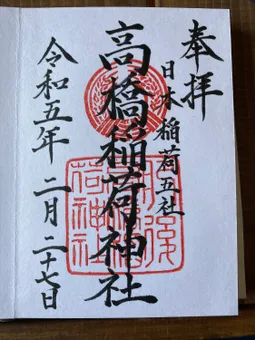 奉拝
日本稲荷五社
高橋稲荷神社
令和五年 二月二十七日